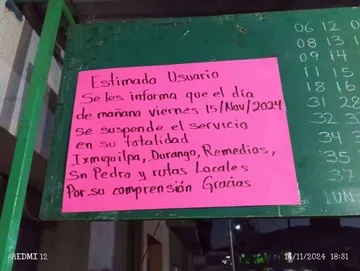 Estimado Usuario
Se les informa que el día
de mañana viernes 15/Nov/2024
se suspende el servicio
en su totalidad
Ixmiquilpa, Durango, Remedios,
Sn Pedro y rutas Locales
Por su comprensión Gracias
06 12
08 13
09 14
11 15
18 16
31 28
32
34
35
37
LUN
REDMI 12
14/11/2024 18:31